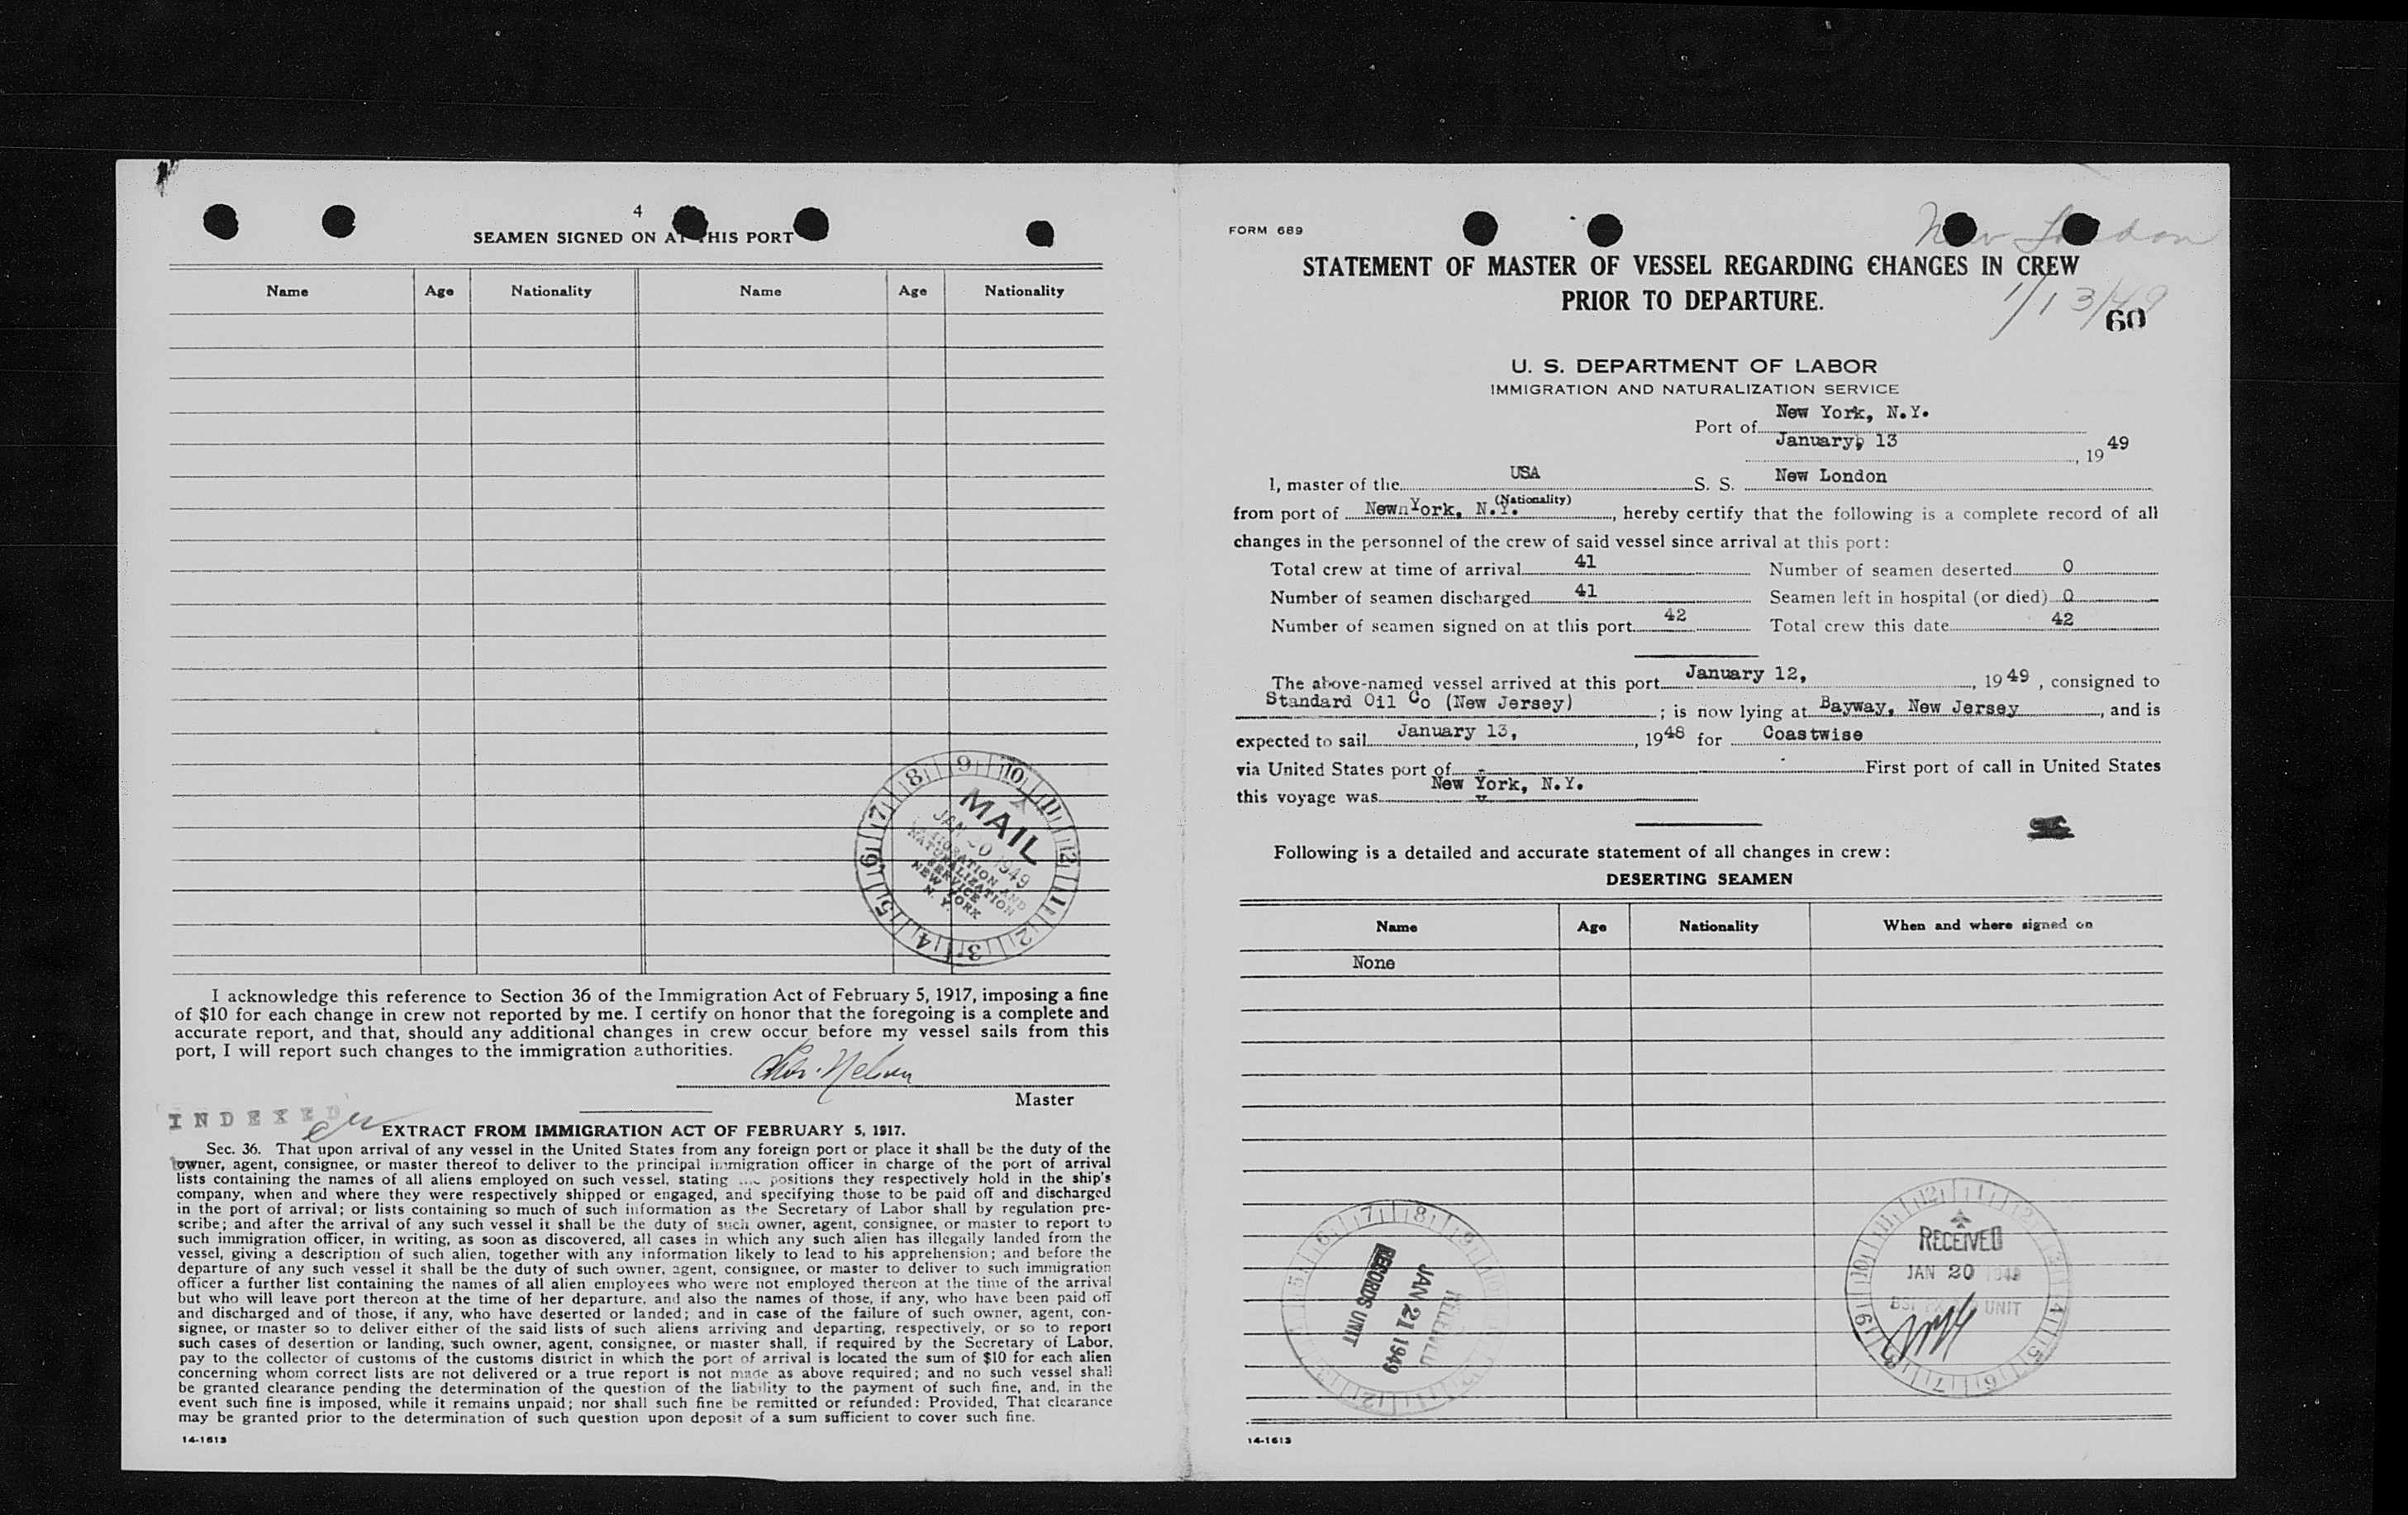 4
SEAMEN SIGNED ON AT THIS PORT
Name Age Nationality Name Age Nationality
MAIL
JAN 20 1949
IMMIGRATION AND
NATURALIZATION
SERVICE
NEW YORK
N. Y.
I acknowledge this reference to Section 36 of the Immigration Act of February 5, 1917, imposing a fine
of $10 for each change in crew not reported by me. I certify on honor that the foregoing is a complete and
accurate report, and that, should any additional changes in crew occur before my vessel sails from this
port, I will report such changes to the immigration authorities.
Nelsen
Master
INDEXED
EXTRACT FROM IMMIGRATION ACT OF FEBRUARY 5, 1917.
Sec. 36. That upon arrival of any vessel in the United States from any foreign port or place it shall be the duty of the
owner, agent, consignee, or master thereof to deliver to the principal immigration officer in charge of the port of arrival
lists containing the names of all aliens employed on such vessel, stating positions they respectively hold in the ship's
company, when and where they were respectively shipped or engaged, and specifying those to be paid off and discharged
in the port of arrival; or lists containing so much of such information as the Secretary of Labor shall by regulation pre-
scribe; and after the arrival of any such vessel it shall be the duty of such owner, agent, consignee, or master to report to
such immigration officer, in writing, as soon as discovered, all cases in which any such alien has illegally landed from the
vessel, giving a description of such alien, together with any information likely to lead to his apprehension; and before the
departure of any such vessel it shall be the duty of such owner, agent, consignee, or master to deliver to such immigration
officer a further list containing the names of all alien employees who were not employed thereon at the time of the arrival
but who will leave port thereon at the time of her departure, and also the names of those, if any, who have been paid off
and discharged and of those, if any, who have deserted or landed; and in case of the failure of such owner, agent, con-
signee, or master so to deliver either of the said lists of such aliens arriving and departing, respectively, or so to report
such cases of desertion or landing, such owner, agent, consignee, or master shall, if required by the Secretary of Labor,
pay to the collector of customs of the customs district in which the port of arrival is located the sum of $10 for each alien
concerning whom correct lists are not delivered or a true report is not made as above required; and no such vessel shall
be granted clearance pending the determination of the question of the liability to the payment of such fine, and, in the
event such fine is imposed, while it remains unpaid; nor shall such fine be remitted or refunded: Provided, That clearance
may be granted prior to the determination of such question upon deposit of a sum sufficient to cover such fine.
14-1613
FORM 689
New London
STATEMENT OF MASTER OF VESSEL REGARDING CHANGES IN CREW
PRIOR TO DEPARTURE.
1/13/49
60
U. S. DEPARTMENT OF LABOR
IMMIGRATION AND NATURALIZATION SERVICE
Port of New York, N.Y.
January, 13, 1949
I, master of the USA S. S. New London
(Nationality)
from port of New York, N.Y., hereby certify that the following is a complete record of all
changes in the personnel of the crew of said vessel since arrival at this port:
Total crew at time of arrival 41 Number of seamen deserted 0
Number of seamen discharged 41 Seamen left in hospital (or died) 0
Number of seamen signed on at this port 42 Total crew this date 42
The above-named vessel arrived at this port January 12, , 1949 , consigned to
Standard Oil Co (New Jersey) ; is now lying at Bayway, New Jersey , and is
expected to sail January 13, , 1948 for Coastwise
via United States port of - First port of call in United States
this voyage was New York, N.Y.
Following is a detailed and accurate statement of all changes in crew:
DESERTING SEAMEN
Name Age Nationality When and where signed on
None
RECEIVED
JAN 21 1949
RECORDS UNIT
RECEIVED
JAN 20 1949
UNIT
14-1613